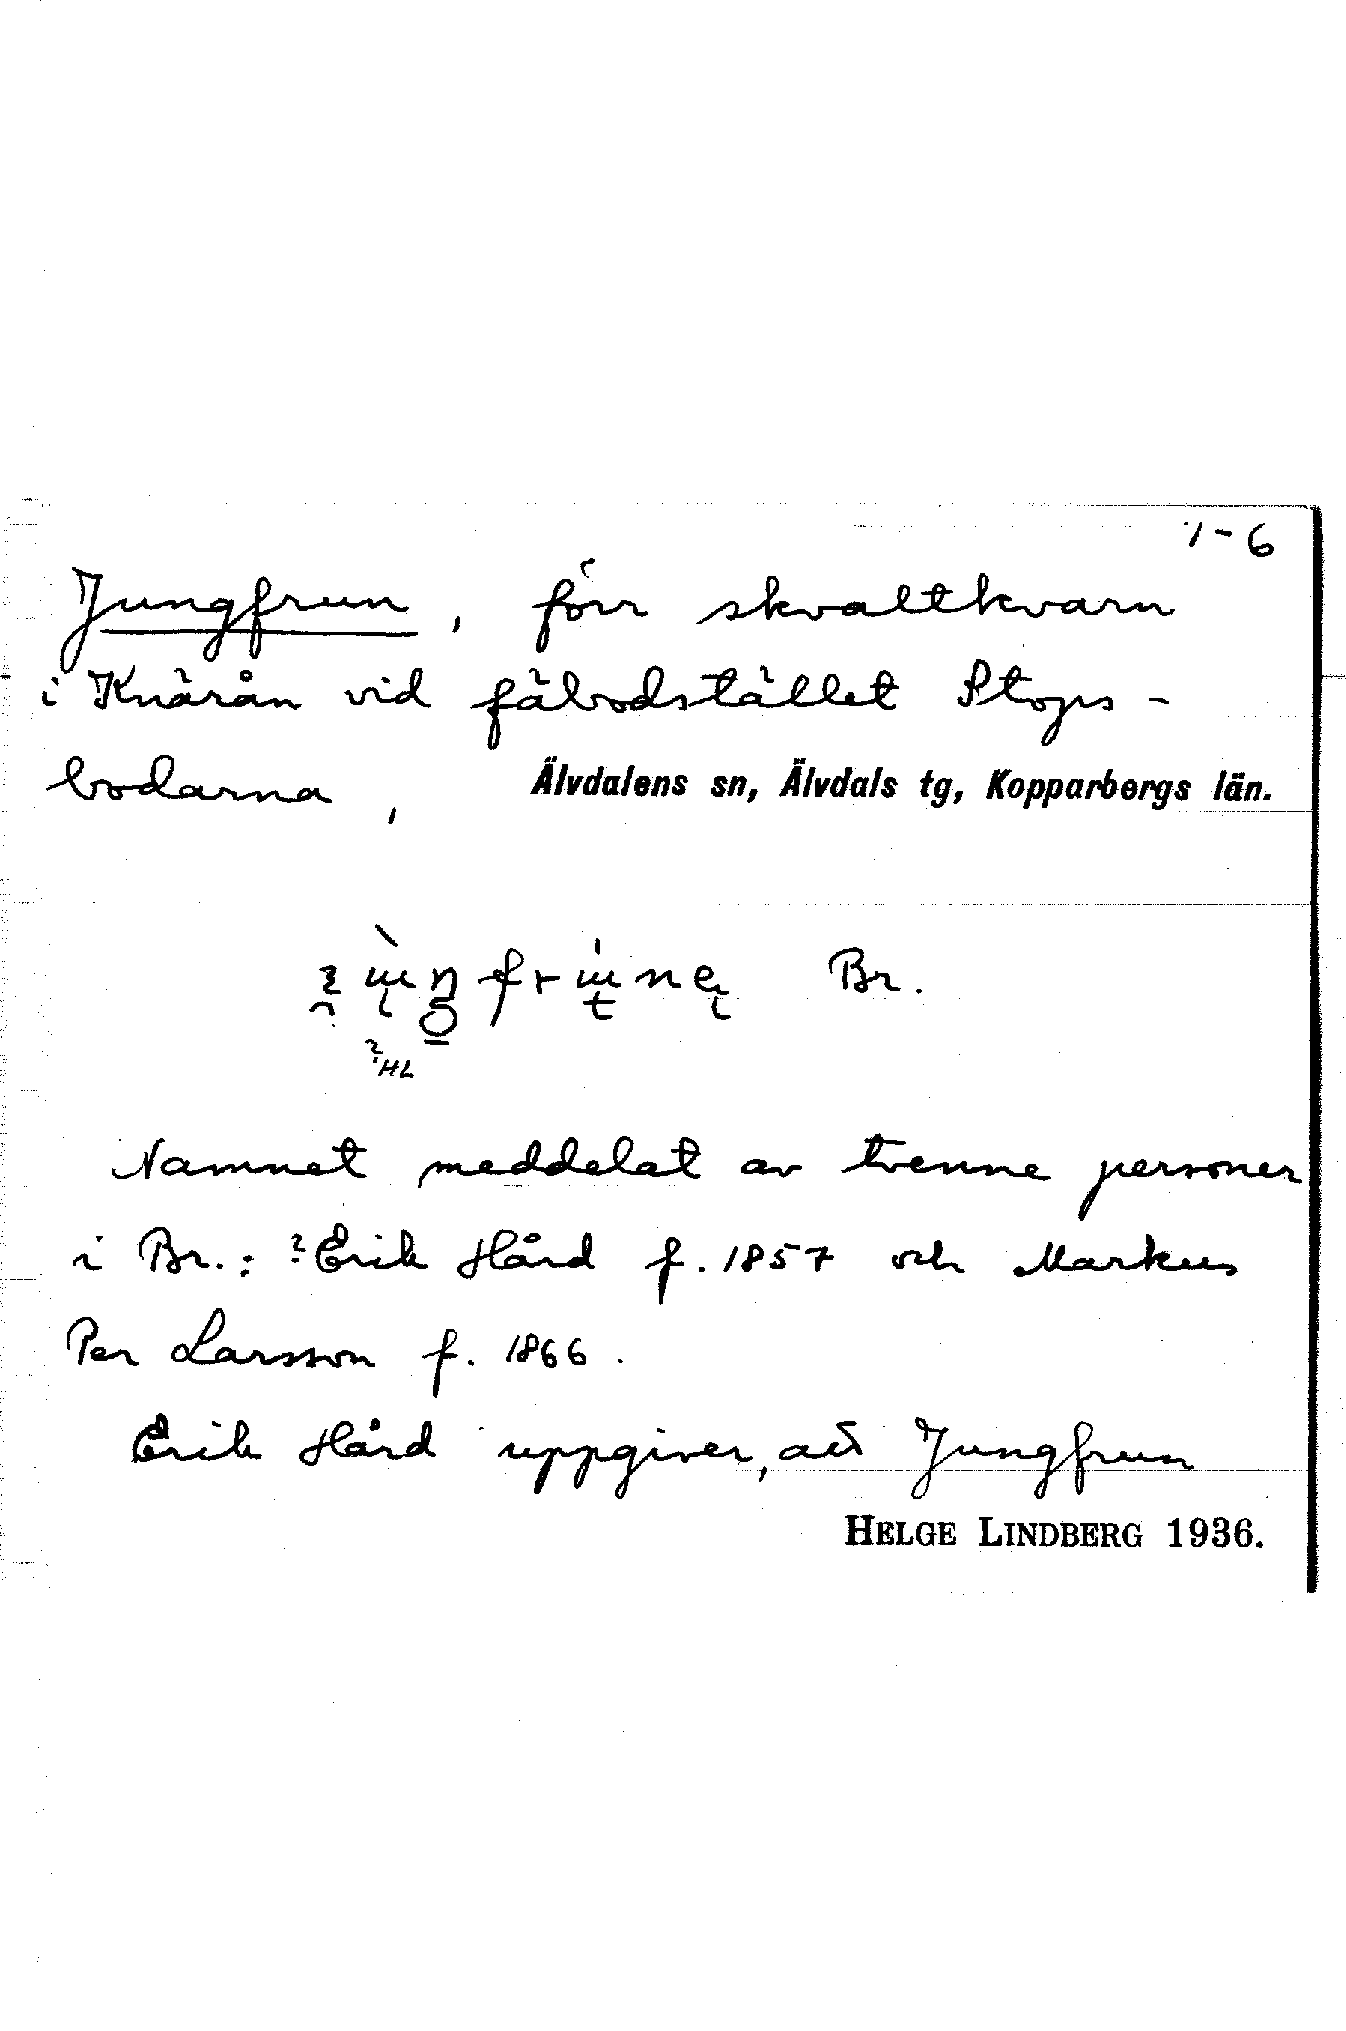 1-6
Jungfrun, förr skvaltkvarn
i Knärån vid fäbodstället Stops-
bodarna, Älvdalens sn, Älvdals tg, Kopparbergs län.
Br.
?HL
Namnet meddelat av tvenne personer
i Br.: ?Erik Hård f. 1857 och Markus
Per Larsson f. 1866.
Erik Hård uppgiver, att Jungfrun
HELGE LINDBERG 1936.